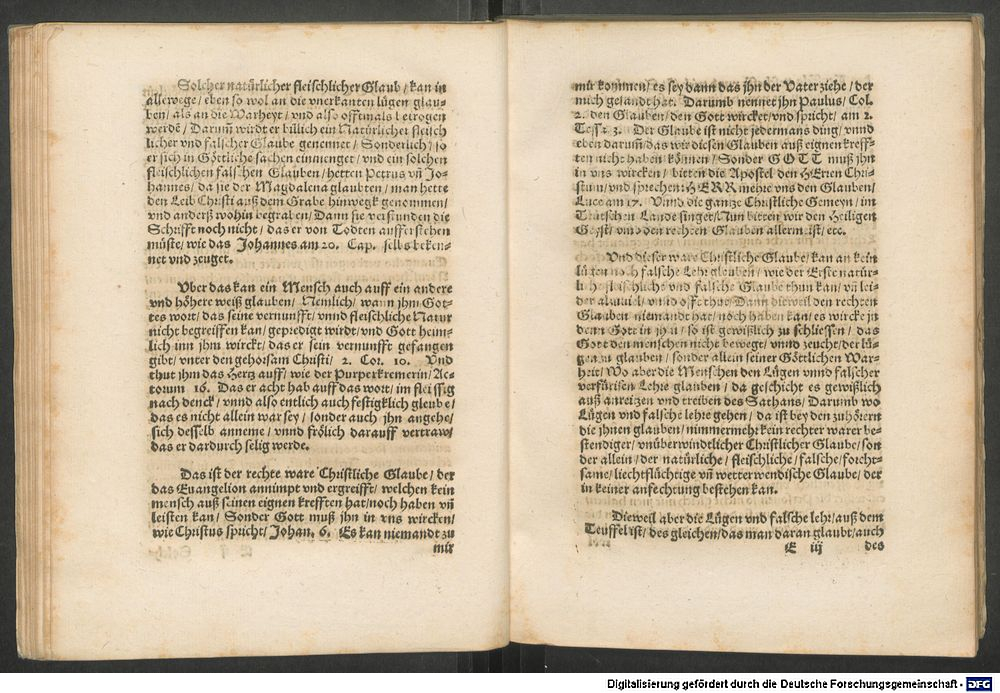 Solcher natürlicher fleischlicher Glaub / kan in
allewege / eben so wol an die vnerkanten lügen glau-
ben / als an die Warheyt / vnd also offtmals betrogen
werdē / Darumm̄ wirdt er billich ein Natürlicher fleisch
licher vnd falscher Glaube genennet / Sonderlich / so
er sich in Göttliche sachen einmenget / vnd ein solchen
fleischlichen falschen Glauben / hetten Petrus vn̄ Jo-
hannes / da sie der Magdalena glaubten / man hette
den Leib Christi auß dem Grabe hinwegk genommen /
vnd anderß wohin begraben / Dann sie verstunden die
Schrifft noch nicht / das er von Todten aufferstehen
müste / wie das Johannes am 20. Cap. selbs beken-
net vnd zeuget.
Vber das kan ein Mensch auch auff ein andere
vnd höhere weiß glauben / Nemlich / wann jhm Got-
tes wort / das seine vernunfft / vnnd fleischliche Natur
nicht begreiffen kan / gepredigt wirdt / vnd Gott heim-
lich inn jhm wirckt / das er sein vernunfft gefangen
gibt / vnter den gehorsam Christi / 2. Cor. 10. Vnd
thut jhm das Hertz auff / wie der Purperkremerin / Ac-
torum 16. Das er acht hab auff das wort / im fleissig
nach denck / vnnd also entlich auch festigklich gleube /
das es nicht allein war sey / sonder auch jhn angehe /
sich desselb anneme / vnnd frölich darauff vertraw /
das er dardurch selig werde.
Das ist der rechte ware Christliche Glaube / der
das Euangelion annimpt vnd ergreifft / welchen kein
mensch auß seinen eignen krefften hat / noch haben vn̄
leisten kan / Sonder Gott muß jhn in vns wircken /
wie Christus spricht / Johan. 6. Es kan niemandt zu
mir
mir kommen / es sey dann das jhn der Vater ziehe / der
mich gesandt hat. Darumb nennet jhn Paulus / Col.
2. den Glauben / den Gott wircket / vnd spricht / am 2.
Tess. 3. Der Glaube ist nicht jedermans ding / vnnd
eben darumm̄ / das wir diesen Glauben auß eignen kreff-
ten nicht haben können / Sonder GOTT muß jhn
in vns wircken / bitten die Apostel den HErren Chri-
stum / vnd sprechen: HERR mehre vns den Glauben /
Luce am 17. Vnnd die gantze Christliche Gemeyn / im
Teutschen Lande singet / Nun bitten wir den Heiligen
Geyst / vmb den rechten Glauben allermeist / etc.
Vnd dieser ware Christliche Glaube / kan an kein
lügen noch falsche Lehr gleuben / wie der Erste natür-
lich fleischliche vnd falsche Glaube thun kan / vn̄ lei-
der allzuuiel / vnnd offt thut / Dann dieweil den rechten
Glauben niemandt hat / noch haben kan / es wircke jn
denn Gott in jhm / so ist gewißlich zu schliessen / das
Gott den menschen nicht bewegt / vnnd zeucht / der lü-
gen zu glauben / sonder allein seiner Göttlichen War-
heit / Wo aber die Menschen den Lügen vnnd falscher
verfürischen Lehre glauben / da geschicht es gewißlich
auß anreitzen vnd treiben des Sathans / Darumb wo
Lügen vnd falsche lehre gehen / da ist bey den zuhörern
die jhnen glauben / nimmermehr kein rechter warer be-
stendiger / vnüberwindtlicher Christlicher Glaube / son
der allein / der natürliche / fleischliche / falsche / forcht-
same / liechtflüchtige vn̄ wetterwendische Glaube / der
in keiner anfechtung bestehen kan.
Dieweil aber die Lügen vnd falsche lehr / auß dem
Teuffel ist / des gleichen / das man daran glaubt / auch
E iij des
Digitalisierung gefördert durch die Deutsche Forschungsgemeinschaft - DFG